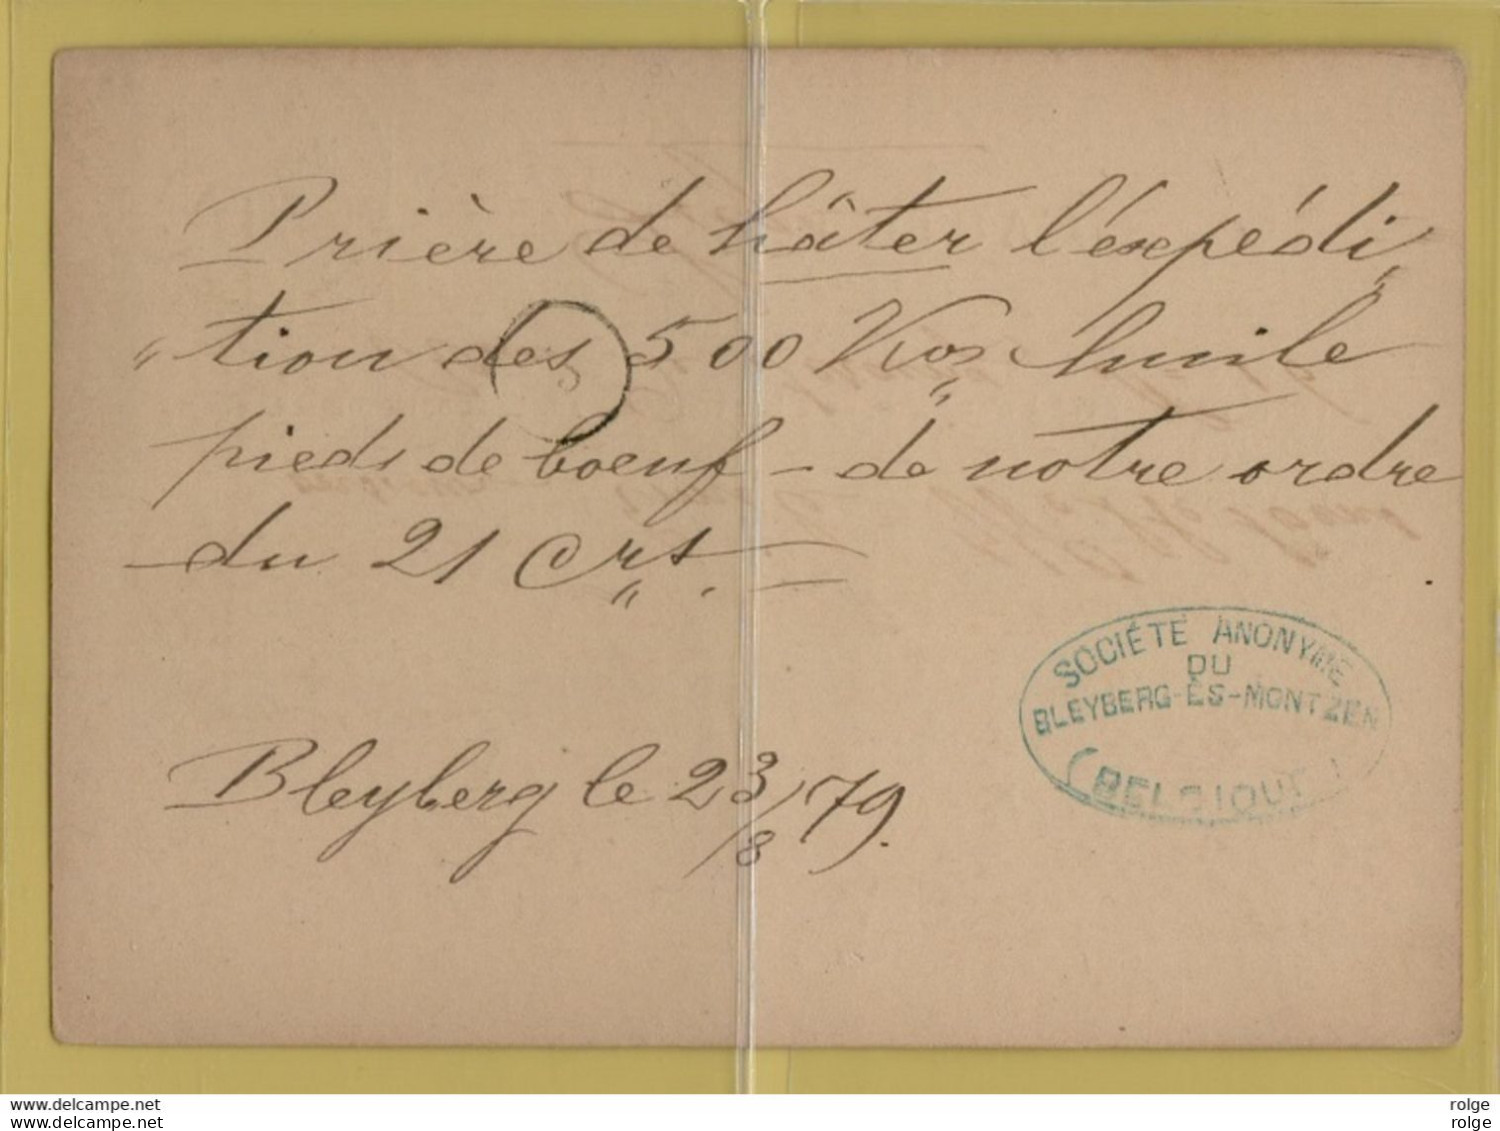 Prière de hâter l'expédi„
„tion des 500 Kos huile
pieds de boeuf – de notre ordre
du 21 Crt.
SOCIÉTÉ ANONYME
DU
BLEYBERG-ÈS-MONTZEN
(BELGIQUE)
Bleyberg le 23/8 79.
delcampe.net
delcampe.net
rolge
rolge